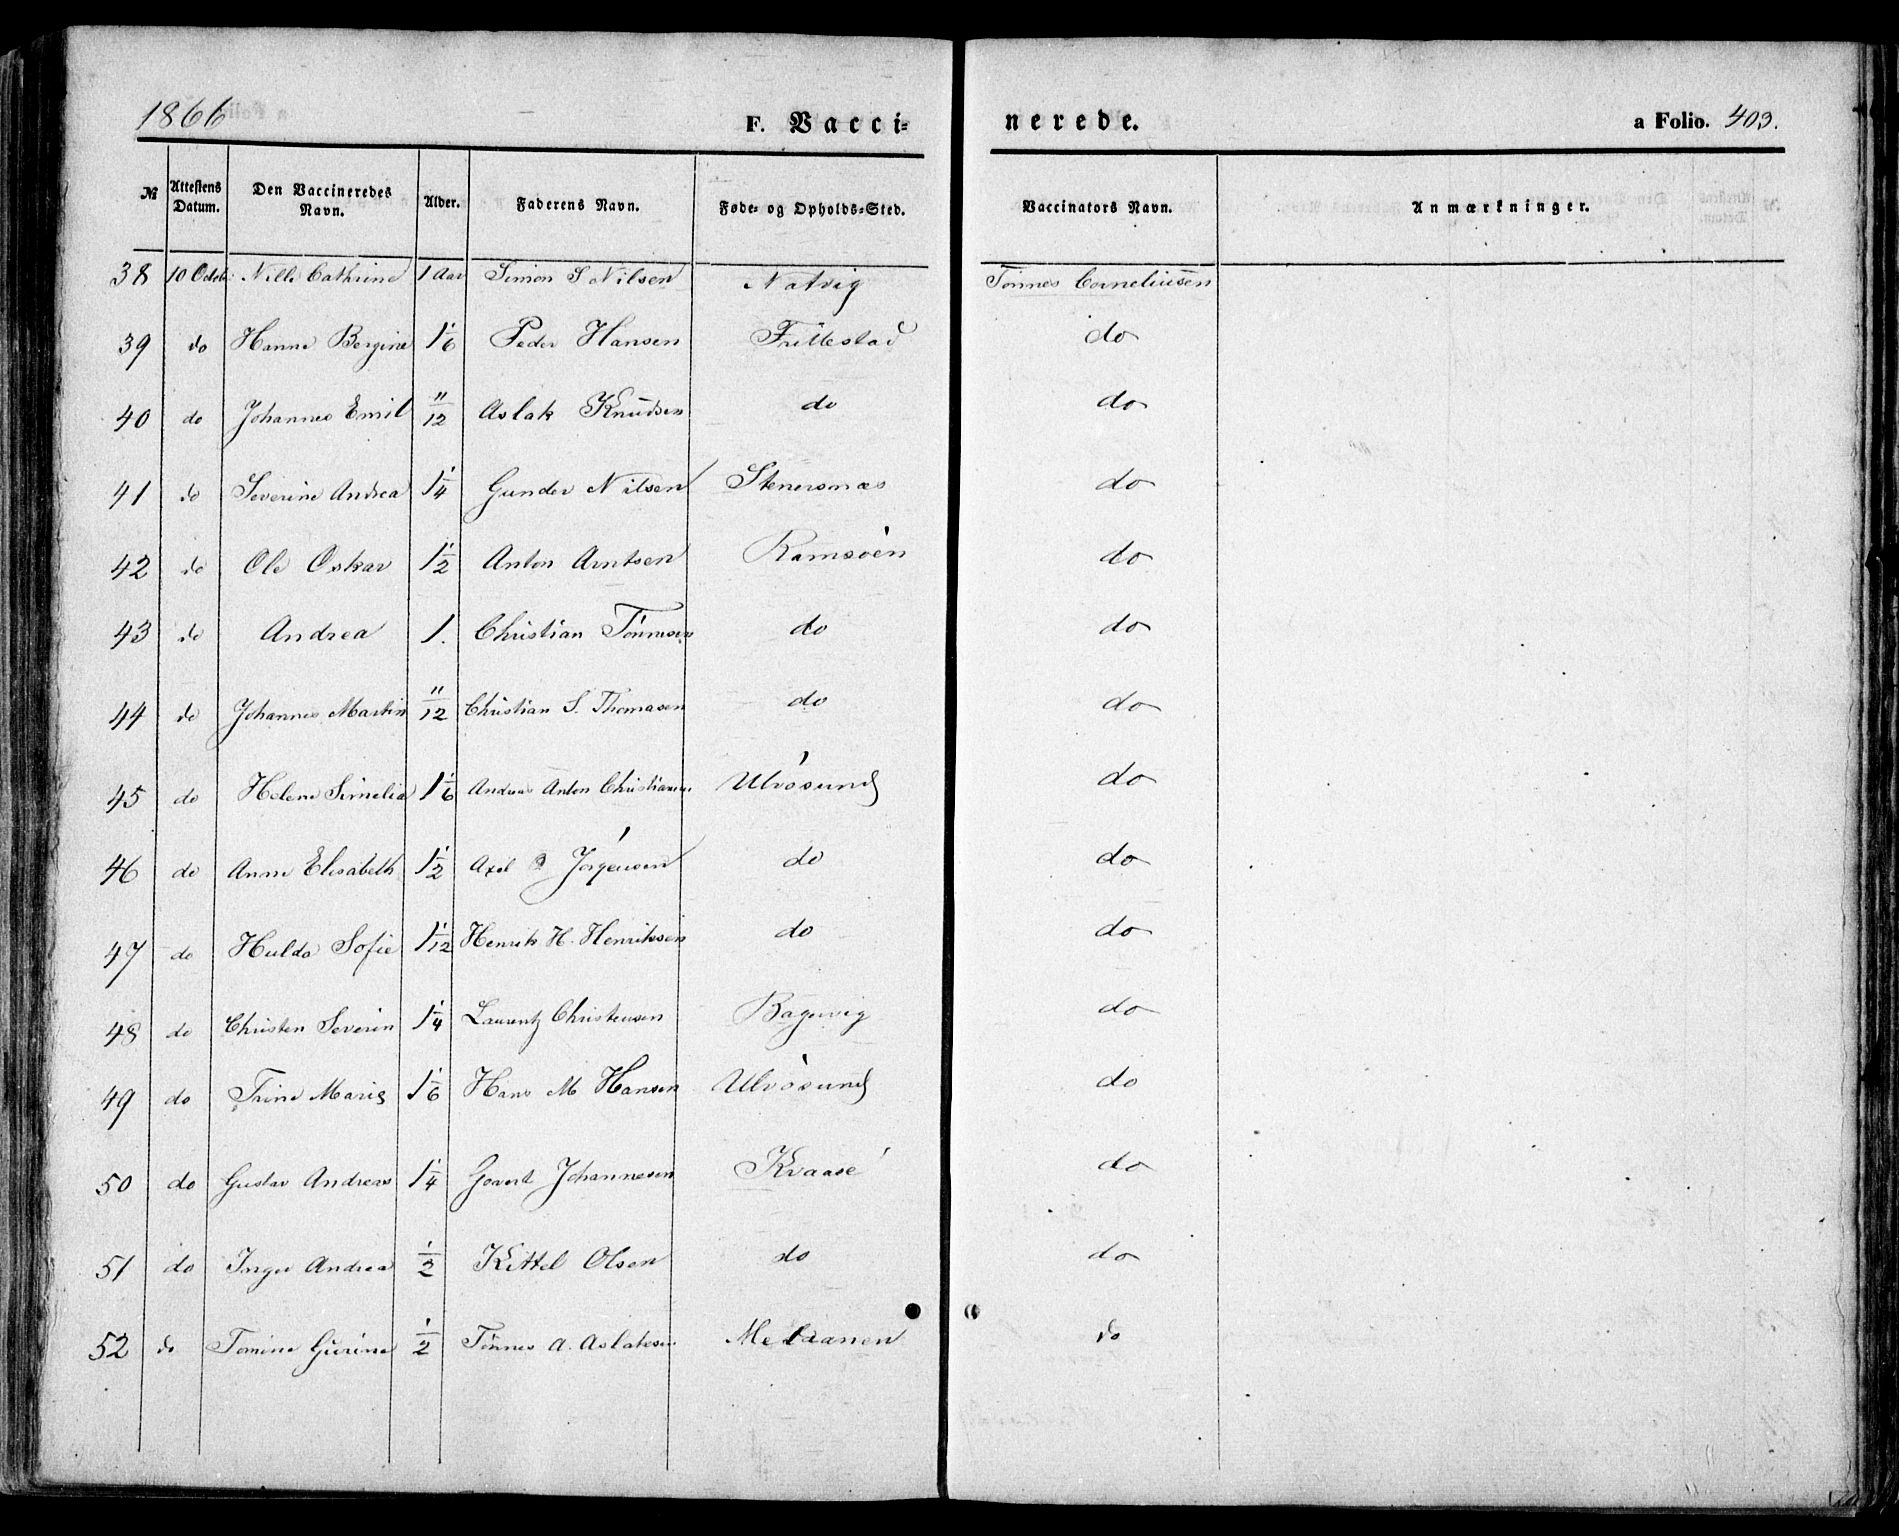 1866 F. Vacci- nerede. a Folio. 403.
№ Attestens Datum. Den Vaccineredes Navn. Alder. Faderens Navn. Føde- og Opholds-Sted. Vaccinators Navn. Anmærkninger.
38 10 Octob: Nille Cathrine 1 Aar Simon S Nilsen Natvig Tönnes Corneliusen
39 do Hanne Bergine 1 1/6 Peder Hansen Frillestad do
40 do Johannes Emil 11/12 Aslak Knudsen do do
41 do Severine Andrea 1 1/4 Gunder Nilsen Stenersnæs do
42 do Ole Oskar 1 1/2 Anton Arntsen Ramsöen do
43 do Andrea 1. Christian Tönnesen do do
44 do Johannes Martin 11/12 Christian S. Thomasen do do
45 do Helene Simelia 1 1/6 Andreas Anton Christiansen Ulvösund do
46 do Anne Elisabeth 1 1/2 Axel Jörgensen do do
47 do Hulda Sofie 1 1/12 Henrik H. Henriksen do do
48 do Christen Severin 1 1/4 Laurentz Christensen Bagevig do
49 do Trine Marie 1 1/6 Hans M Hansen Ulvösund do
50 do Gustav Andreas 1 1/4 Govert Johannesen Kvaase do
51 do Inger Andrea 1/2 Kittel Olsen do do
52 do Tomine Gurine 1/2 Tönnes A. Aslaksen do